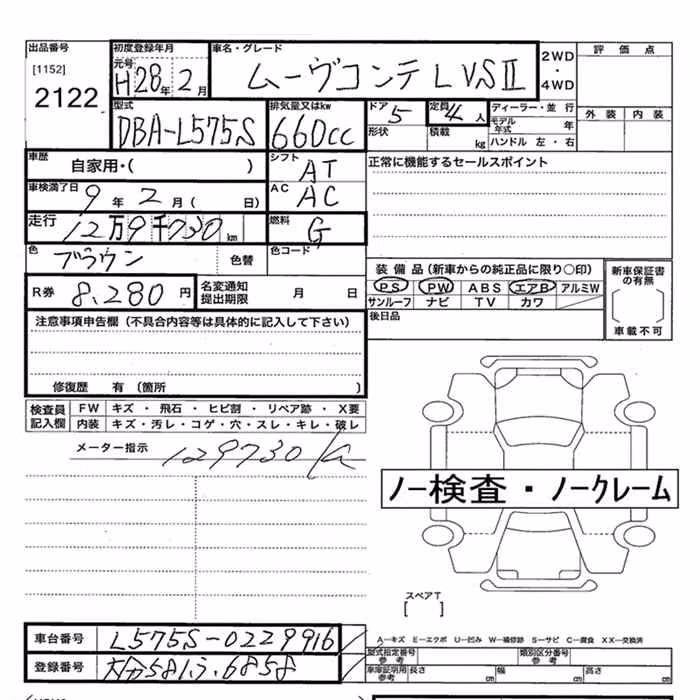 出品番号 初度登録年月 車名・グレード 評価点
[1152] 元号 2WD
2122 H28年2月 ムーヴコンテ L VSⅡ ・
4WD
型式 排気量又はkw ドア 定員 ディーラー・並行 外装 内装
DBA-L575S 660cc 5 4人 モデル年式 年
形状 積載 kg ハンドル 左・右
車歴 シフト 正常に機能するセールスポイント
自家用・( ) AT
車検満了日 AC
9年2月( 日) AC
走行 燃料
12万9千730km G
色 色コード
ブラウン 色替
装備品(新車からの純正品に限り○印) 新車保証書の有無
R券 8,280円 名変通知提出期限 月 日 PS PW ABS エアB アルミW
サンルーフ ナビ TV カワ
車載不可
注意事項申告欄(不具合内容等は具体的に記入して下さい) 後日品
修復歴 有(箇所 )
検査員記入欄 FW キズ・飛石・ヒビ割・リペア跡・X要
内装 キズ・汚レ・コゲ・穴・スレ・キレ・破レ
メーター指示 129730
ノー検査・ノークレーム
スペアT
[ ]
車台番号 L575S-0229916
A-キズ E-エクボ U-凹み W-補修跡 S-サビ C-腐食 XX-交換済
型式指定番号 参考 類別区分番号 参考
登録番号 大分581う6858
車庫証明用 参考 長さ cm 幅 cm 高さ cm